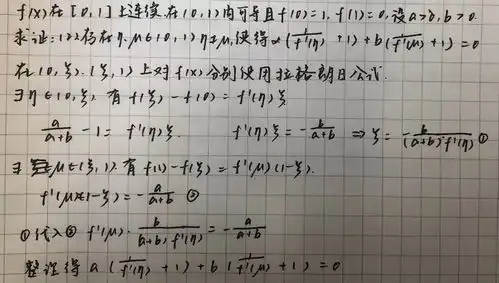 f(x)在[0,1]上连续,在(0,1)内可导且f(0)=1, f(1)=0,设a>0, b>0.
求证:(2)存在η,μ∈(0,1) η≠μ,使得a(1/f'(η) +1)+b(1/f'(μ) +1)=0
在(0,ξ),(ξ,1)上对f(x)分别使用拉格朗日公式.
∃η∈(0,ξ),有f(ξ)-f(0)=f'(η)ξ
a/(a+b) -1= f'(η)ξ f'(η)ξ=-b/(a+b) ⇒ξ=-b/((a+b)f'(η)) ①
∃μ∈(ξ,1),有f(1)-f(ξ)=f'(μ)(1-ξ).
f'(μ)(1-ξ)=-a/(a+b) ②
①代入② f'(μ)· b/((a+b)f'(η)) =-a/(a+b)
整理得 a(1/f'(η) +1)+b(1/f'(μ) +1)=0